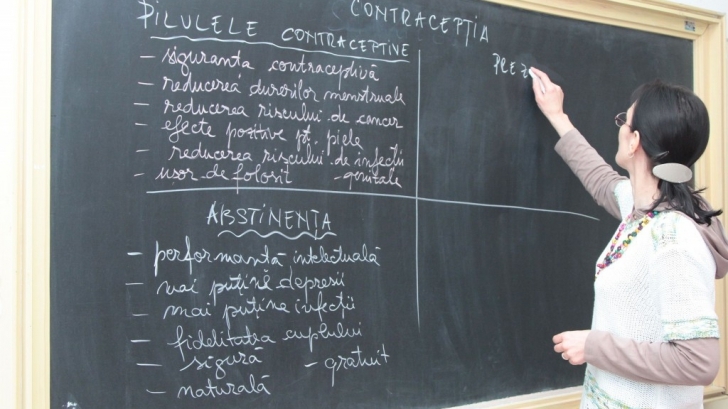 CONTRACEPȚIA
PILULELE CONTRACEPTIVE
- siguranta contraceptivă
- reducerea durerilor menstruale
- reducerea riscului de cancer
- efecte positive pt. piele
- reducerea riscului de infecții
- usor de folosit - genitale
PREZ
ABSTINENȚA
- performantă intelectuală
- mai puține depresii
- mai puține infecții
- fidelitatea cuplului
- sigură - gratuit
- naturală